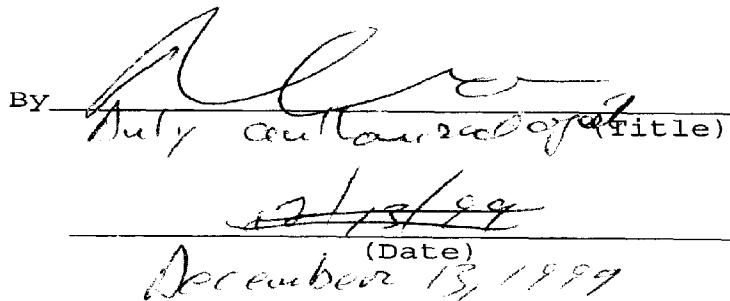 By
Duly authorized agent (Title)
12/13/99
(Date)
December 13, 1999